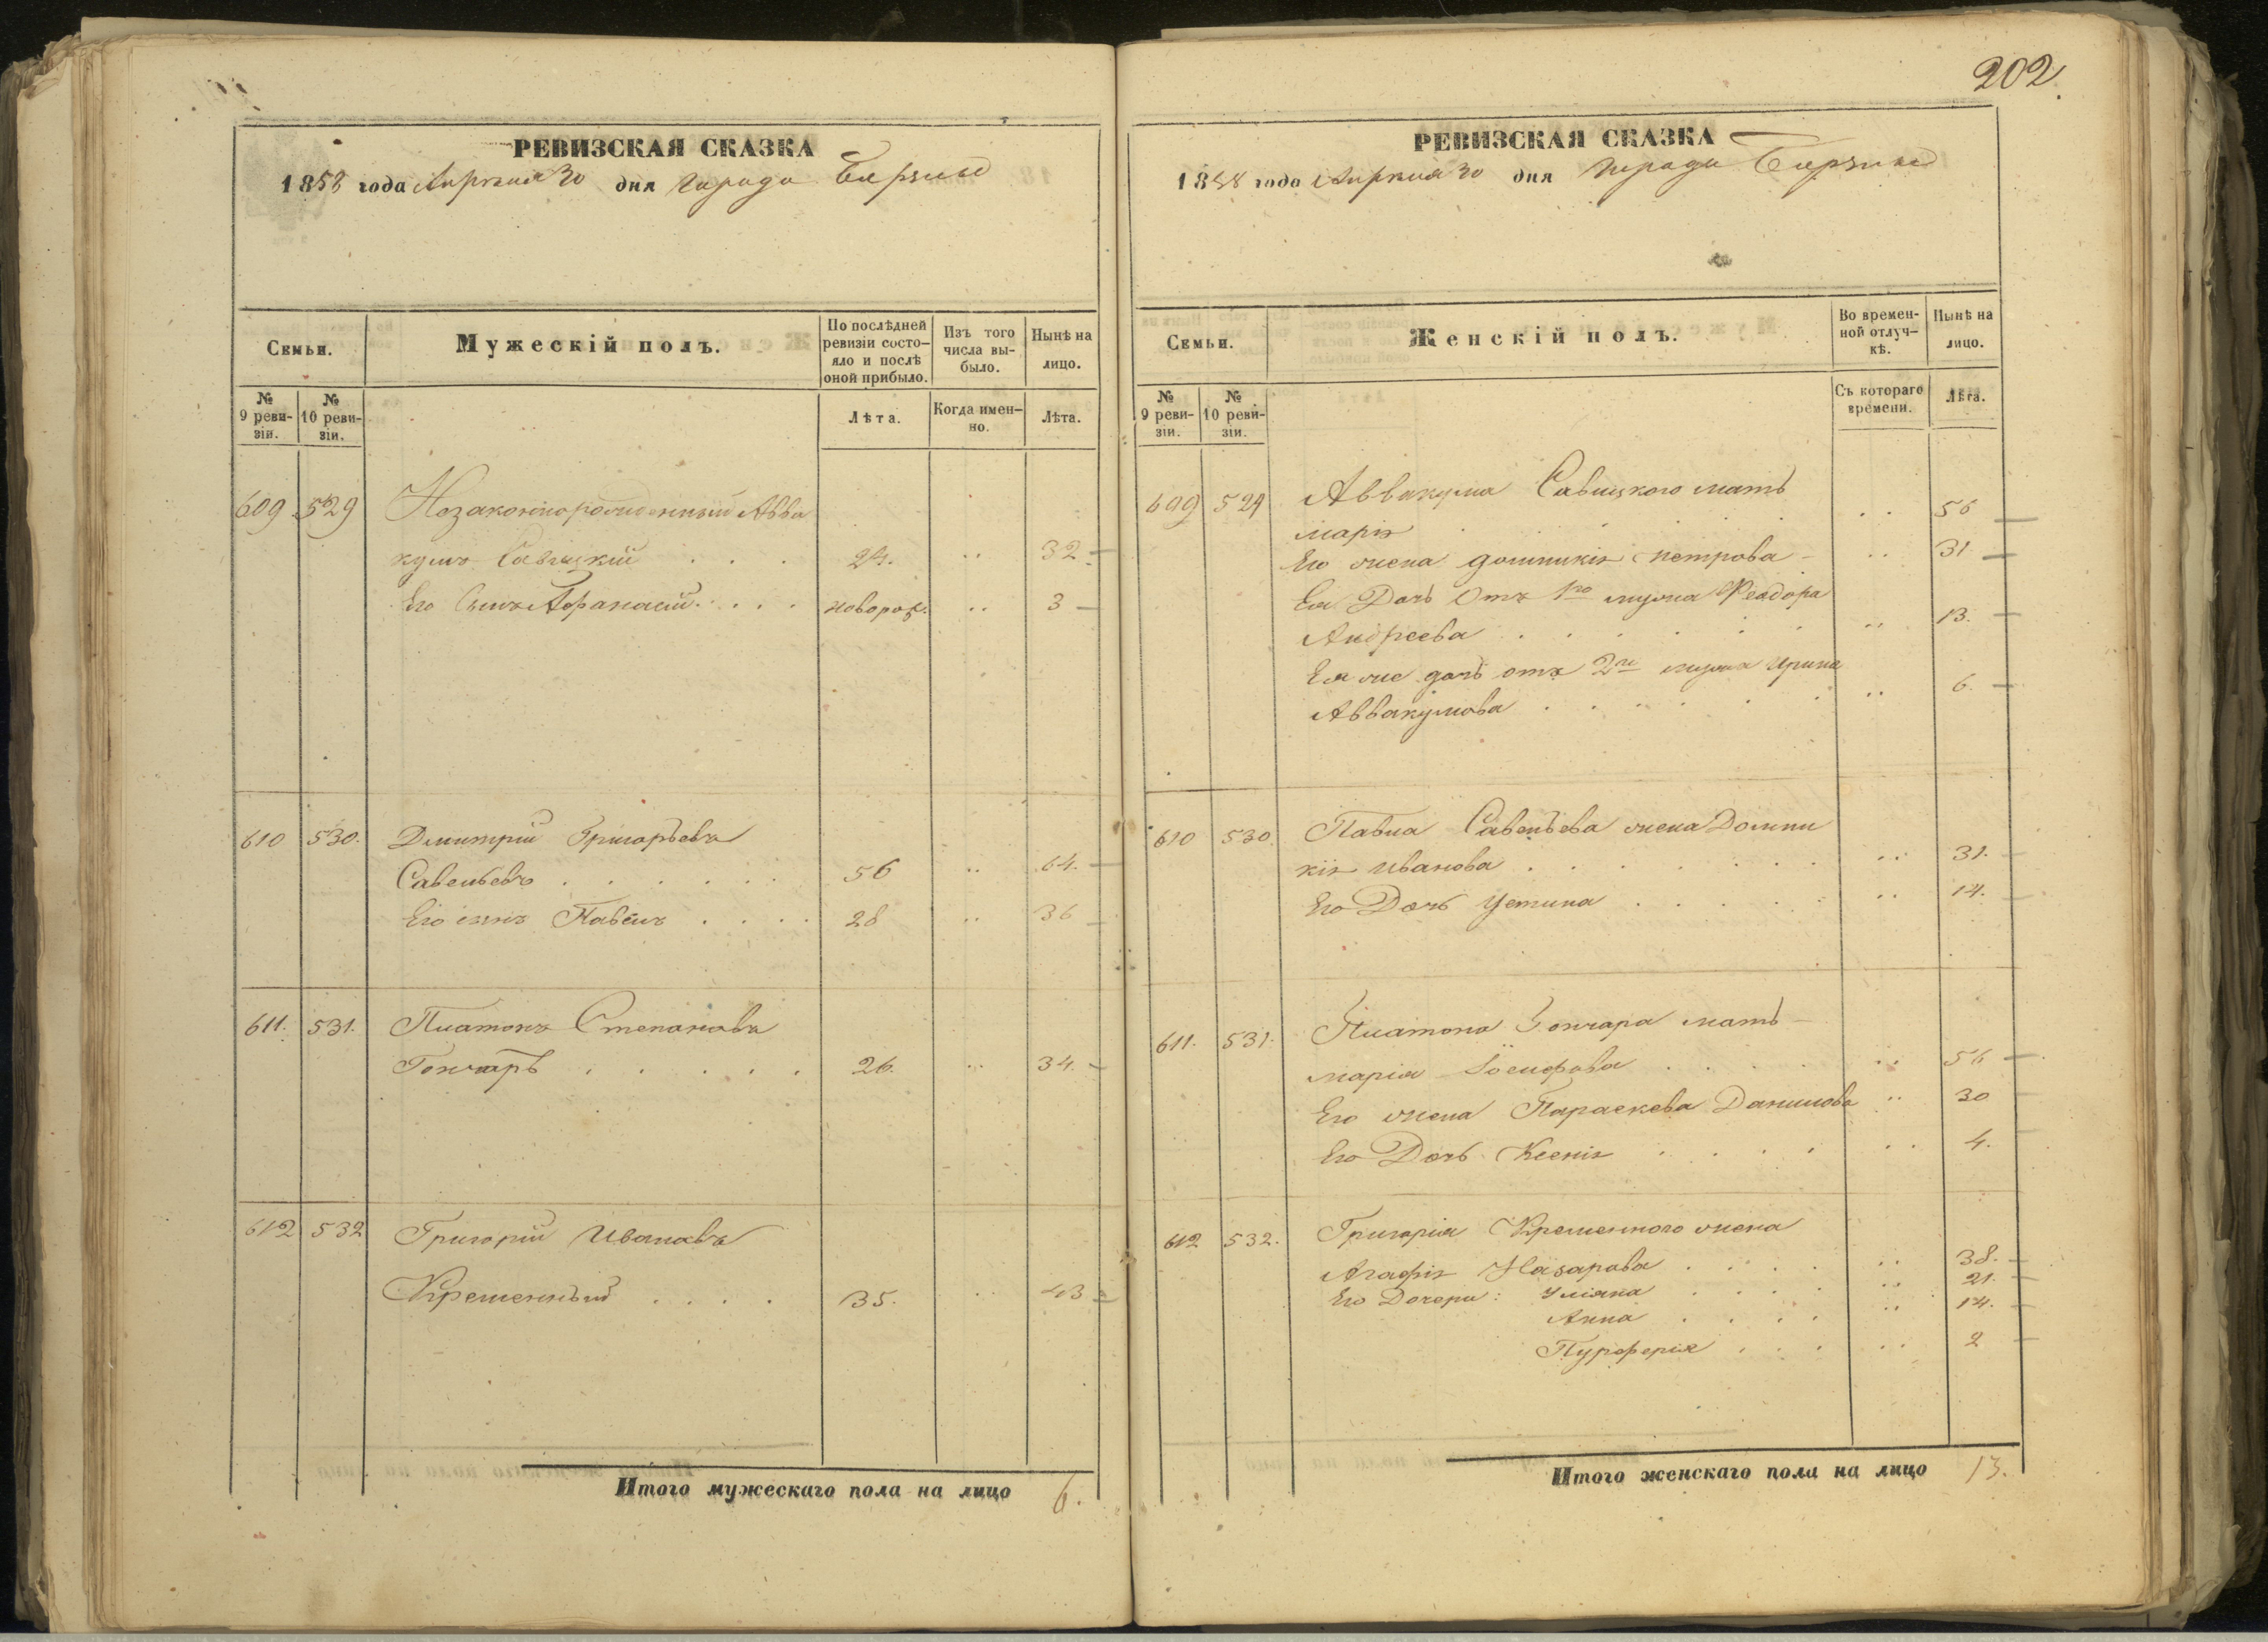 РЕВИЗСКАЯ СКАЗКА
1858 года Апреля 30 дня Города
Семьи.
Мужескій полъ.
По послѣдней ревизіи состояло и послѣ оной прибыло.
Изъ того числа выбыло.
Нынѣ на лицо.
№ 9 ревизіи.
№ 10 ревизіи.
Лѣта.
Когда именно.
Лѣта.
609 529 Незаконнорожденный Авва
кумъ Савицкій . . . 24. .. 32
Его Сынъ Афанасий . . . новорож. .. 3
610 530. Дмитрій Григорьевъ
Савельевъ . . . . . . 56 .. 64.
Его сынъ Павелъ . . . . 28 .. 36
611. 531. Платонъ Степановъ
Гончаръ . . . . . 26. .. 34.
612 532 Григорій Ивановъ
Кременный . . . . 35. .. 43
Итого мужескаго пола на лицо 6.
202.
РЕВИЗСКАЯ СКАЗКА
1858 года Апреля 30 дня Города
Семьи.
Женскій полъ.
Во временной отлучкѣ.
Нынѣ на лицо.
№ 9 ревизіи.
№ 10 ревизіи.
Съ котораго времени.
Лѣта.
609 529 Аввакума Савицкого мать
Марія . . . . . .. 56
Его жена Домникія Петрова .. 31
Ея Дочь Отъ 1го мужа Феодора
Андреева . . . . . . .. 13.
Ея же дочь отъ 2го мужа Ирина
Аввакумова . . . . . . .. 6.
610 530. Павла Савельева жена Домни
кія Иванова . . . . . . . .. 31.
Его Дочь Устина . . . . . .. 14.
611. 531. Платона Гончара мать
Марія Іосифова . . . . .. 56
Его жена Параскева Данилова .. 30
Его Дочь Ксенія . . . . .. 4.
612 532. Григорія Кременного жена
Агафія Назарова . . . . .. 38.
Его Дочери: Уліяна . . . . .. 21.
Анна . . . . .. 14.
. . . .. 2
Итого женскаго пола на лицо 13.